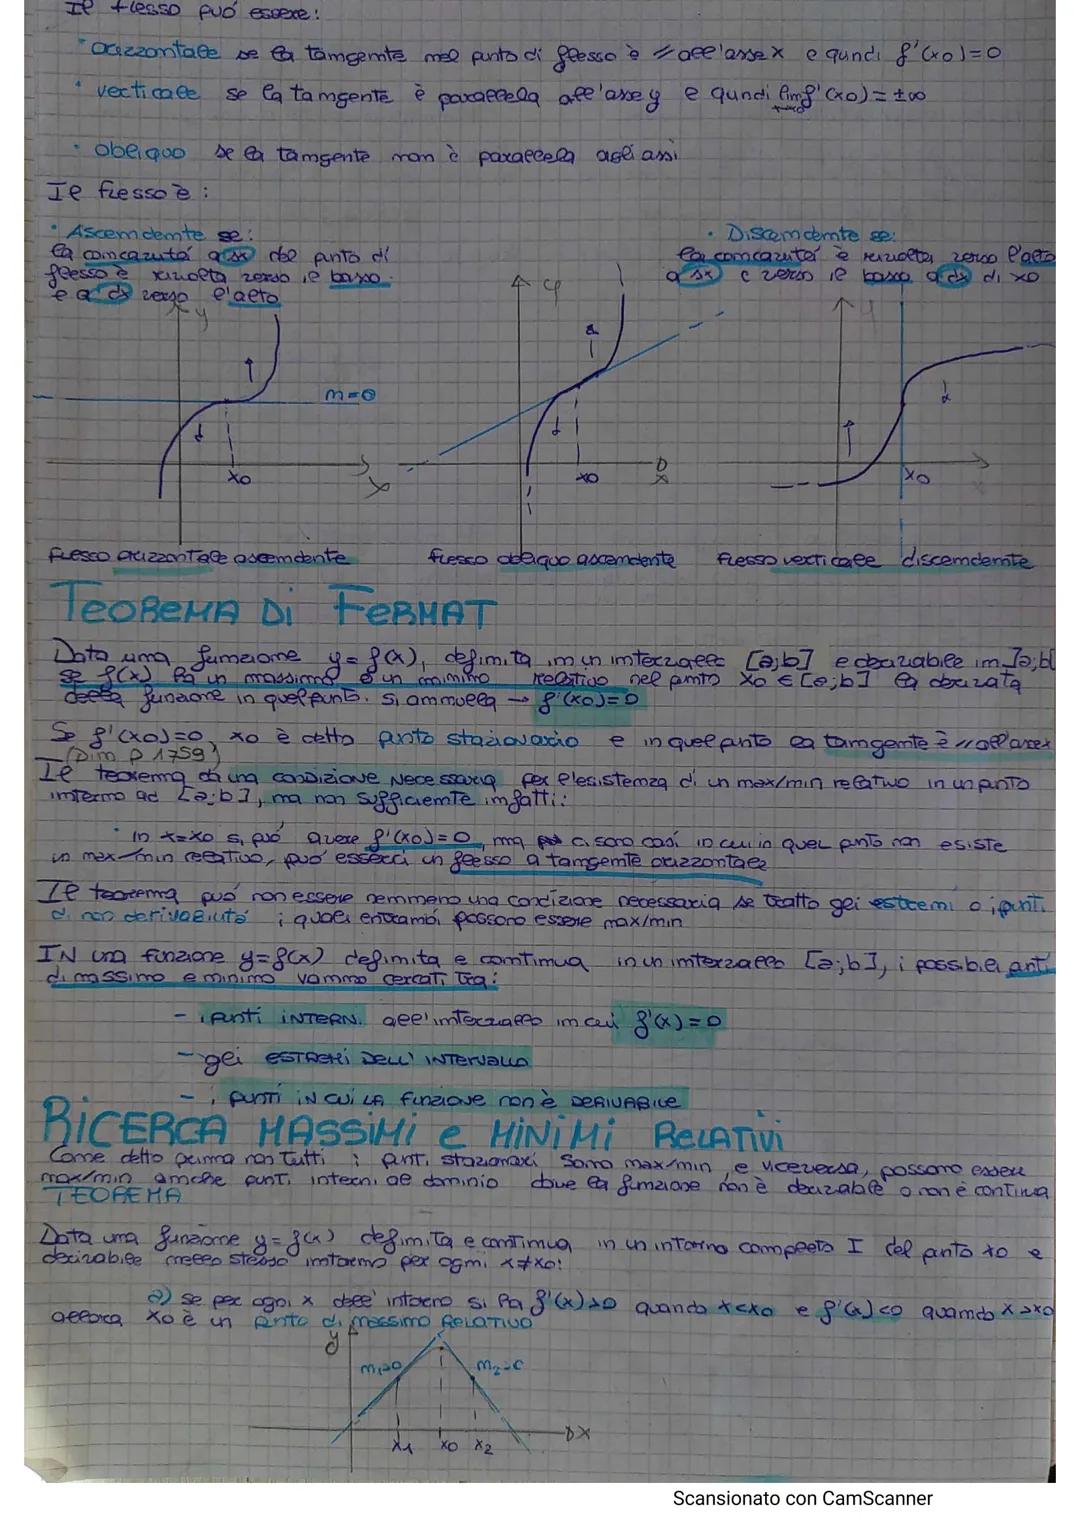 Il flesso può essere:
• orizzontale se la tangente nel punto di flesso è // all'asse x e quindi f'(x0)=0
• verticale se la tangente è parallela all'asse y e quindi lim f'(x0)=±∞
• obliquo se la tangente non è parallela agli assi
Il flesso è:
• Ascendente se:
la concavità a sx del punto di
flesso è rivolta verso il basso
e a dx verso l'alto
• Discendente se:
la concavità è rivolta verso l'alto
a sx e verso il basso a dx di x0
y
m=0
x0
x
y
x0
x
y
x0
flesso orizzontale ascendente
flesso obliquo ascendente
flesso verticale discendente
TEOREMA Di FERMAT
Data una funzione y=f(x), definita in un intervallo [a;b] e derivabile in ]a;b[
se f(x) ha un massimo o un minimo relativo nel punto x0 ∈ [a;b] la derivata
della funzione in quel punto si annulla → f'(x0)=0
Se f'(x0)=0, x0 è detto punto stazionario e in quel punto la tangente è // all'asse x
(Dim p 1759)
Il teorema dà una condizione necessaria per l'esistenza di un max/min relativo in un punto
interno ad [a;b], ma non sufficiente infatti:
• in x=x0 si può avere f'(x0)=0, ma ci sono casi in cui in quel punto non esiste
un max/min relativo, può esserci un flesso a tangente orizzontale
Il teorema può non essere nemmeno una condizione necessaria se tratto gli estremi o i punti
di non derivabilità i quali entrambi possono essere max/min
IN una funzione y=f(x) definita e continua in un intervallo [a;b], i possibili punti
di massimo e minimo vanno cercati tra:
- i punti INTERNI all'intervallo in cui f'(x)=0
- gli ESTREMI DELL'INTERVALLO
- i punti iN CUI LA funzione non è DERIVABILE
RICERCA MASSIMI e MINIMI RELATIVI
Come detto prima non tutti i punti stazionari sono max/min, e viceversa, possono essere
max/min anche punti interni al dominio dove la funzione non è derivabile o non è continua
TEOREMA
Data una funzione y=f(x) definita e continua in un intorno completo I del punto x0 e
derivabile nello stesso intorno per ogni x≠x0:
a) se per ogni x dell'intorno si ha f'(x)>0 quando x<x0 e f'(x)<0 quando x>x0
allora x0 è un punto di massimo RELATIVO
y
m1>0
m2<0
x1 x0 x2
x
Scansionato con CamScanner